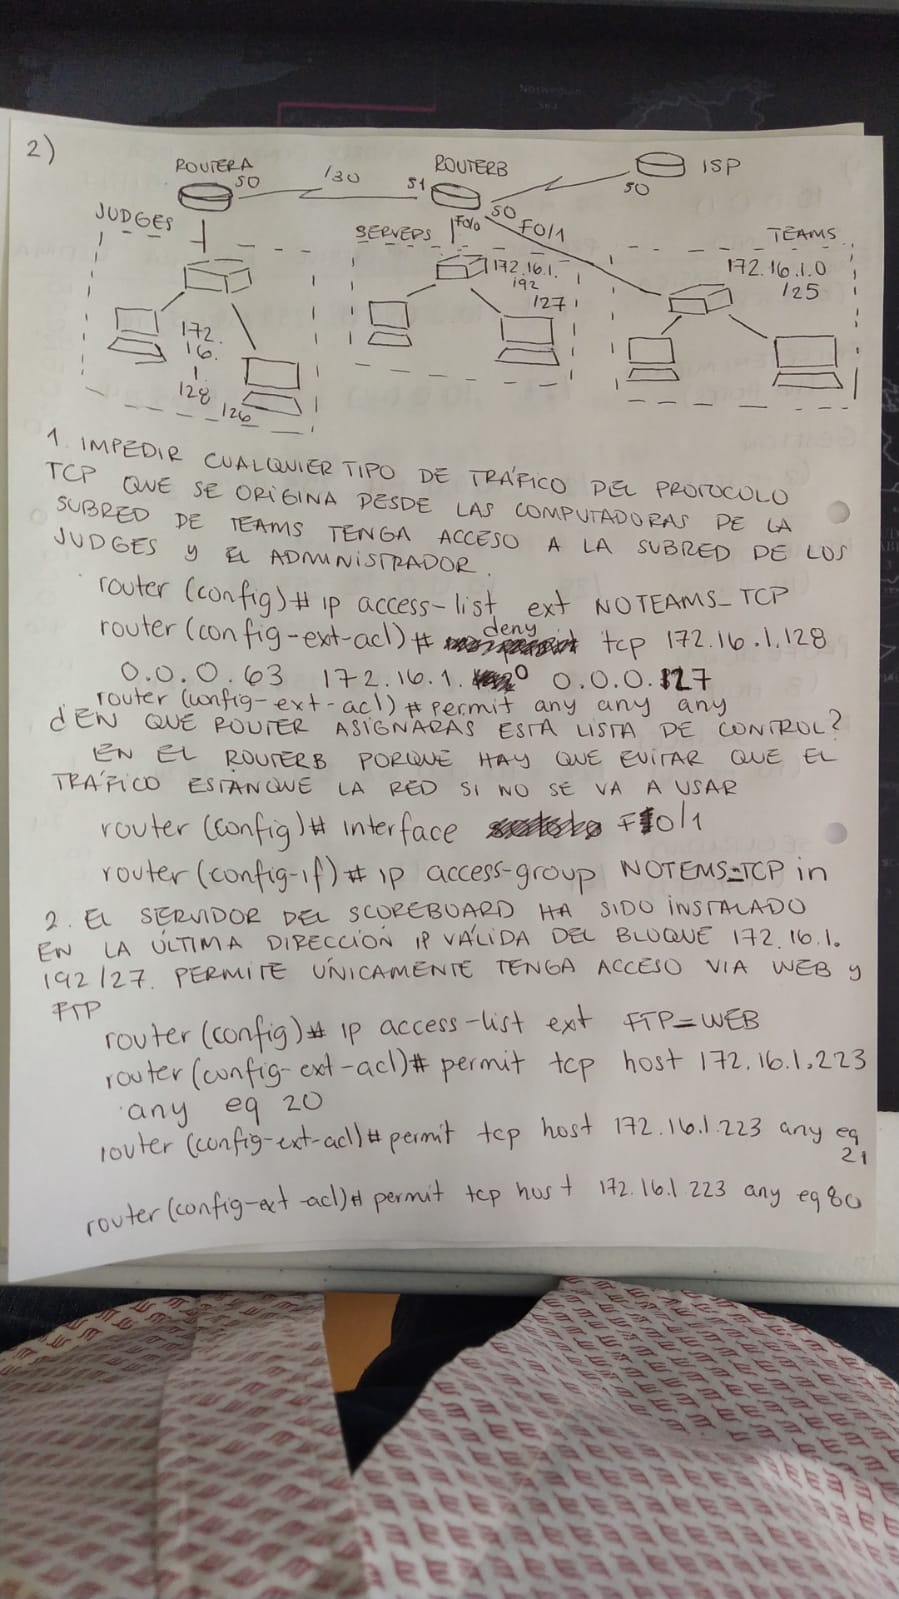 2)
ROUTERA
S0
/30
S1
ROUTERB
S0
F0/0
F0/1
S0
ISP
JUDGES
172.
16.
1.
128
/26
SERVERS
172.16.1.
192
/27
TEAMS
172.16.1.0
/25
1. IMPEDIR CUALQUIER TIPO DE TRÁFICO DEL PROTOCOLO
TCP QUE SE ORIGINA DESDE LAS COMPUTADORAS DE LA
SUBRED DE TEAMS TENGA ACCESO A LA SUBRED DE LOS
JUDGES y EL ADMINISTRADOR.
router (config)# ip access-list ext NOTEAMS_TCP
router (config-ext-acl)# deny tcp 172.16.1.128
0.0.0.63 172.16.1.0 0.0.0.127
router (config-ext-acl)# permit any any any
¿EN QUE ROUTER ASIGNARAS ESTA LISTA DE CONTROL?
EN EL ROUTERB PORQUE HAY QUE EVITAR QUE EL
TRÁFICO ESTANQUE LA RED SI NO SE VA A USAR
router (config)# interface F0/1
router (config-if)# ip access-group NOTEMS_TCP in
2. EL SERVIDOR DEL SCOREBOARD HA SIDO INSTALADO
EN LA ÚLTIMA DIRECCIÓN IP VÁLIDA DEL BLOQUE 172.16.1.
192/27. PERMITE ÚNICAMENTE TENGA ACCESO VIA WEB y
FTP
router (config)# ip access-list ext FTP=WEB
router (config-ext-acl)# permit tcp host 172.16.1.223
any eq 20
router (config-ext-acl)# permit tcp host 172.16.1.223 any eq
21
router (config-ext-acl)# permit tcp host 172.16.1.223 any eq 80